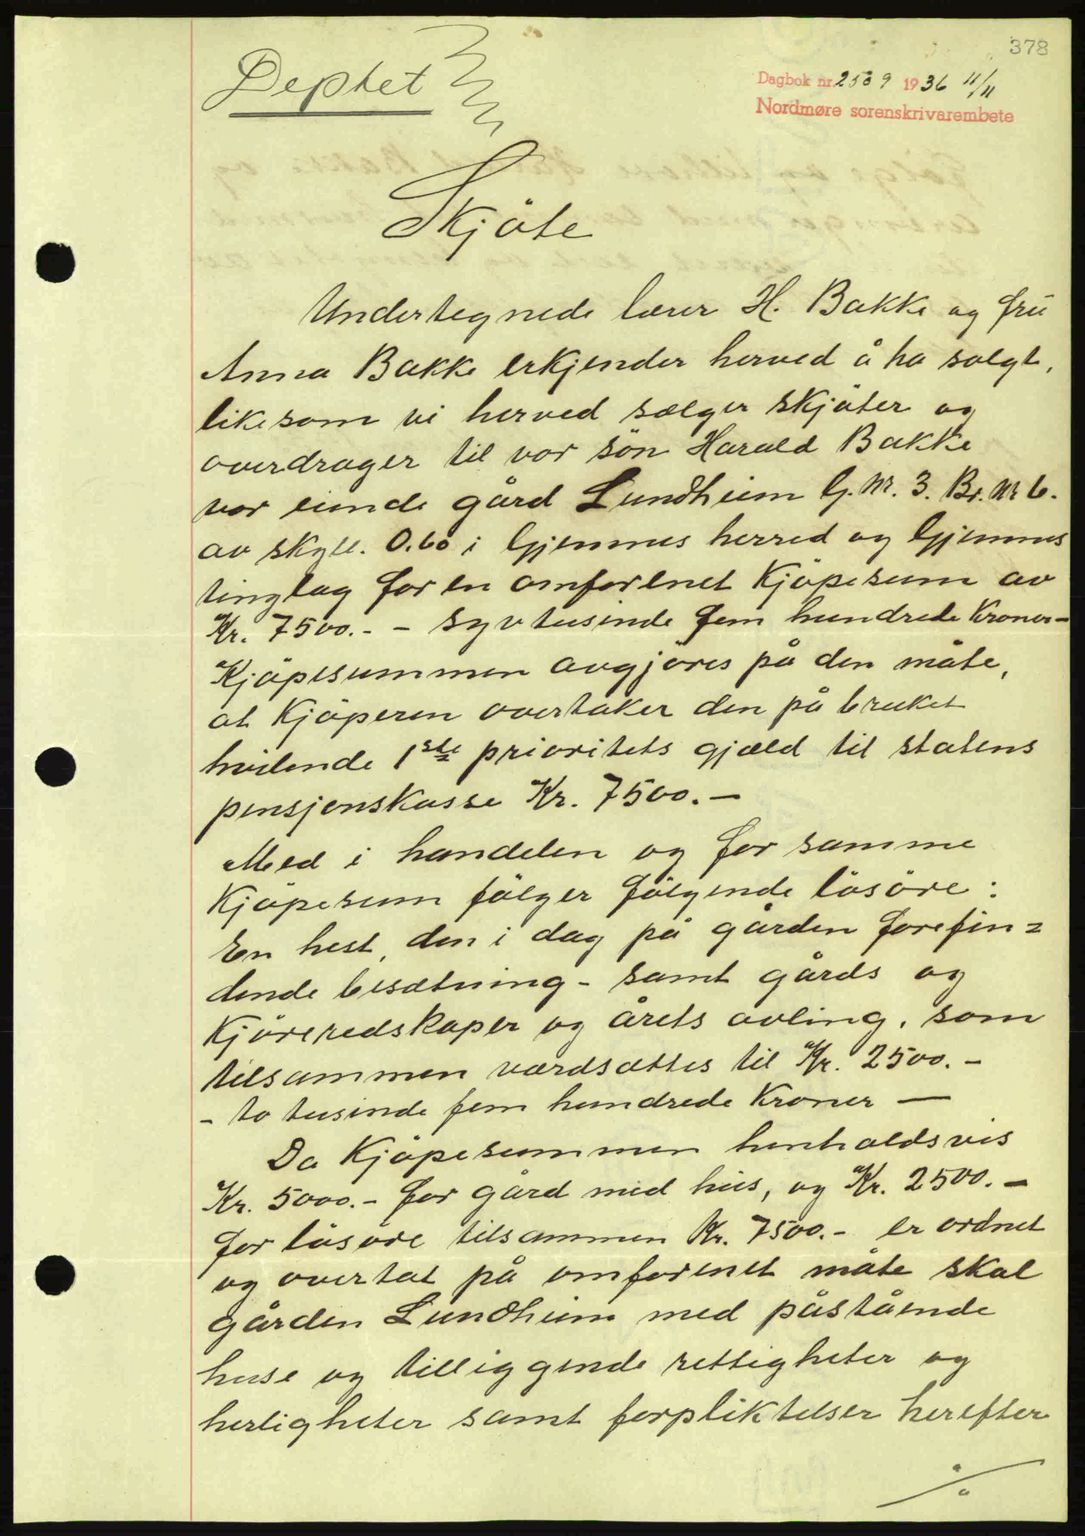 378
Deptet
Dagbok nr. 2509 1936 11/11
Nordmøre sorenskrivarembete
Skjöte
Undertegnede lærer H. Bakke og fru
Anna Bakke erkjender herved å ha solgt,
likesom vi herved sælger skjöter og
overdrager til vor sön Harald Bakke
vor eiende gård Lundheim G. Nr. 3. Br. Nr 6.
av skyll. 0.60 i Gjemnes herred og Gjemnes
tinglag for en omforenet Kjöpesum av
Kr. 7500.- - syvtusinde fem hundrede Kroner-
Kjöpesummen avgjöres på den måte,
at Kjöperen overtaker den på bruket
hvilende 1ste prioritets gjæld til statens
pensjonskasse Kr. 7500.-
Med i handelen og for samme
Kjöpesum fölger fölgende lösöre:
En hest, den i dag på gården forefin=
dende besætning - samt gårds og
Kjöreredskaper og årets avling. som
tilsammen værdsættes til Kr. 2500.-
- to tusinde fem hundrede Kroner -
Da Kjöpesummen henholdsvis
Kr. 5000.- for gård med hus, og Kr. 2500.-
for lösöre tilsammen Kr. 7500.- er ordnet
og overtat på omforenet måte skal
gården Lundheim med påstående
huse og tilliggende rettigheter og
herligheter samt forpliktelser herefter
./.